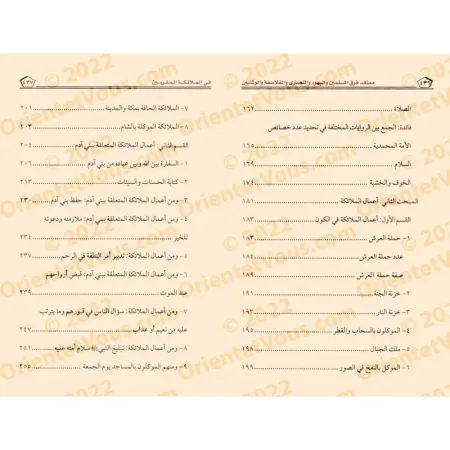 ٤٣٦ معتقد فرق المسلمين واليهود والنصارى والفلاسفة والوثنيين
الصلاة ١٦٢
فائدة: الجمع بين الروايات المختلفة في تحديد عدد خصائص
الأمة المحمدية ١٦٥
السلام ١٦٩
الخوف والخشية ١٧٤
المبحث الثاني: أعمال الملائكة ١٨١
القسم الأول: أعمال الملائكة في الكون ١٨٣
١- حملة العرش ١٨٣
عدد حملة العرش ١٨٤
صفة حملة العرش ١٨٩
٢- خزنة الجنة ١٩١
٣- خزنة النار ١٩٣
٤- الموكلون بالسحاب والقطر ١٩٥
٥- ملك الجبال ١٩٨
٦- الموكل بالنفخ في الصور ١٩٩
في الملائكة المقربين ٤٣٧
٧- الملائكة الحافة بمكة والمدينة ٢٠١
٨- الملائكة الموكلة بالشام ٢٠٣
القسم الثاني: أعمال الملائكة المتعلقة ببني آدم ٢٠٤
١- السفارة بين الله وبين عباده من بني آدم ٢٠٥
٢- كتابة الحسنات والسيئات ٢١٥
٣- ومن أعمال الملائكة المتعلقة ببني آدم: حفظ بني آدم ٢٣٠
٤- ومن أعمال الملائكة المتعلقة ببني آدم: ملازمته ودعوته
للخير ٢٣٣
٥- ومن أعمال الملائكة: تدبير أمر النطفة في الرحم ٢٣٧
٦- ومن أعمال الملائكة المتعلقة ببني آدم: قبض أرواحهم
عند الموت ٢٣٩
٧- ومن أعمال الملائكة: سؤال الناس في قبورهم وما يترتب
عليه من نعيم أو عذاب ٢٤٧
٨- ومن أعمال الملائكة: تبليغ النبي ﷺ سلام أمته عليه ٢٥١
٩- ومنهم الموكلون بالمساجد يوم الجمعة ٢٥٥
© 2022
OrientetVous.com